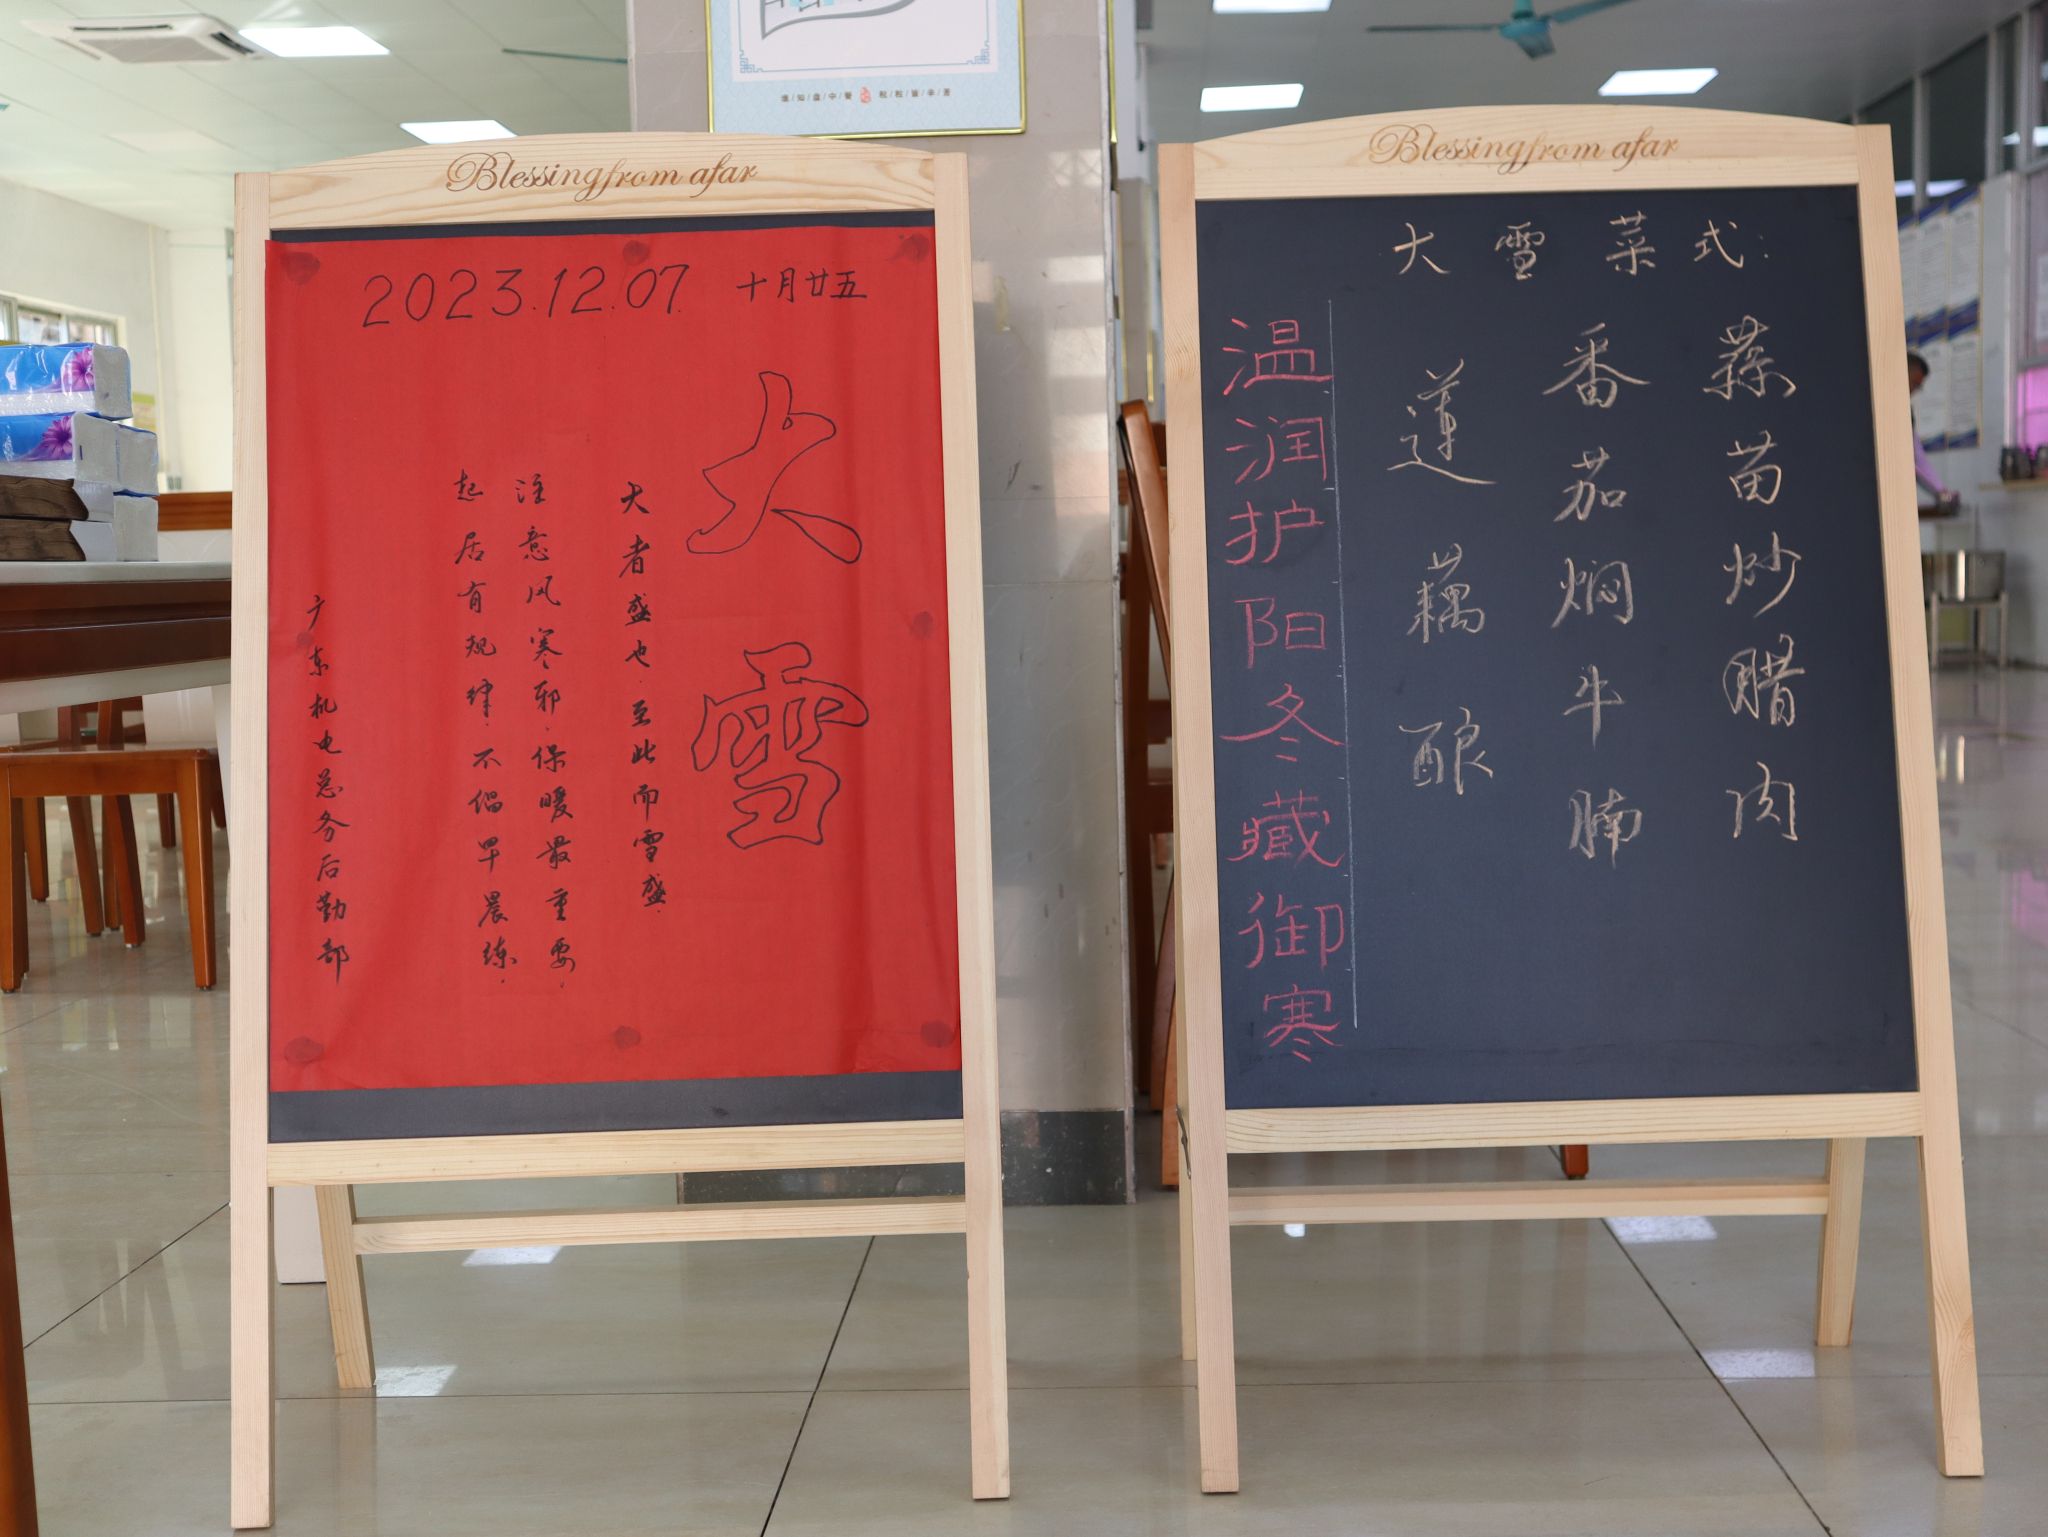 谁/知/盘/中/餐 粒/粒/皆/辛/苦
Blessing from afar
2023.12.07 十月廿五
大雪
大者盛也.至此而雪盛.
注意风寒邪.保暖最重要.
起居有规律.不倡早晨练.
广东机电总务后勤部
Blessing from afar
大雪菜式:
蒜苗炒腊肉
番茄焖牛腩
莲藕酿
温润护阳冬藏御寒